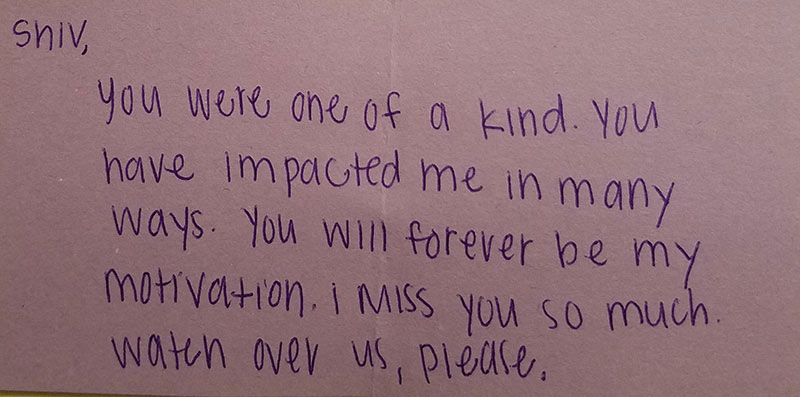 Shiv,
you were one of a kind. You
have impacted me in many
ways. You will forever be my
motivation. i miss you so much.
watch over us, please.